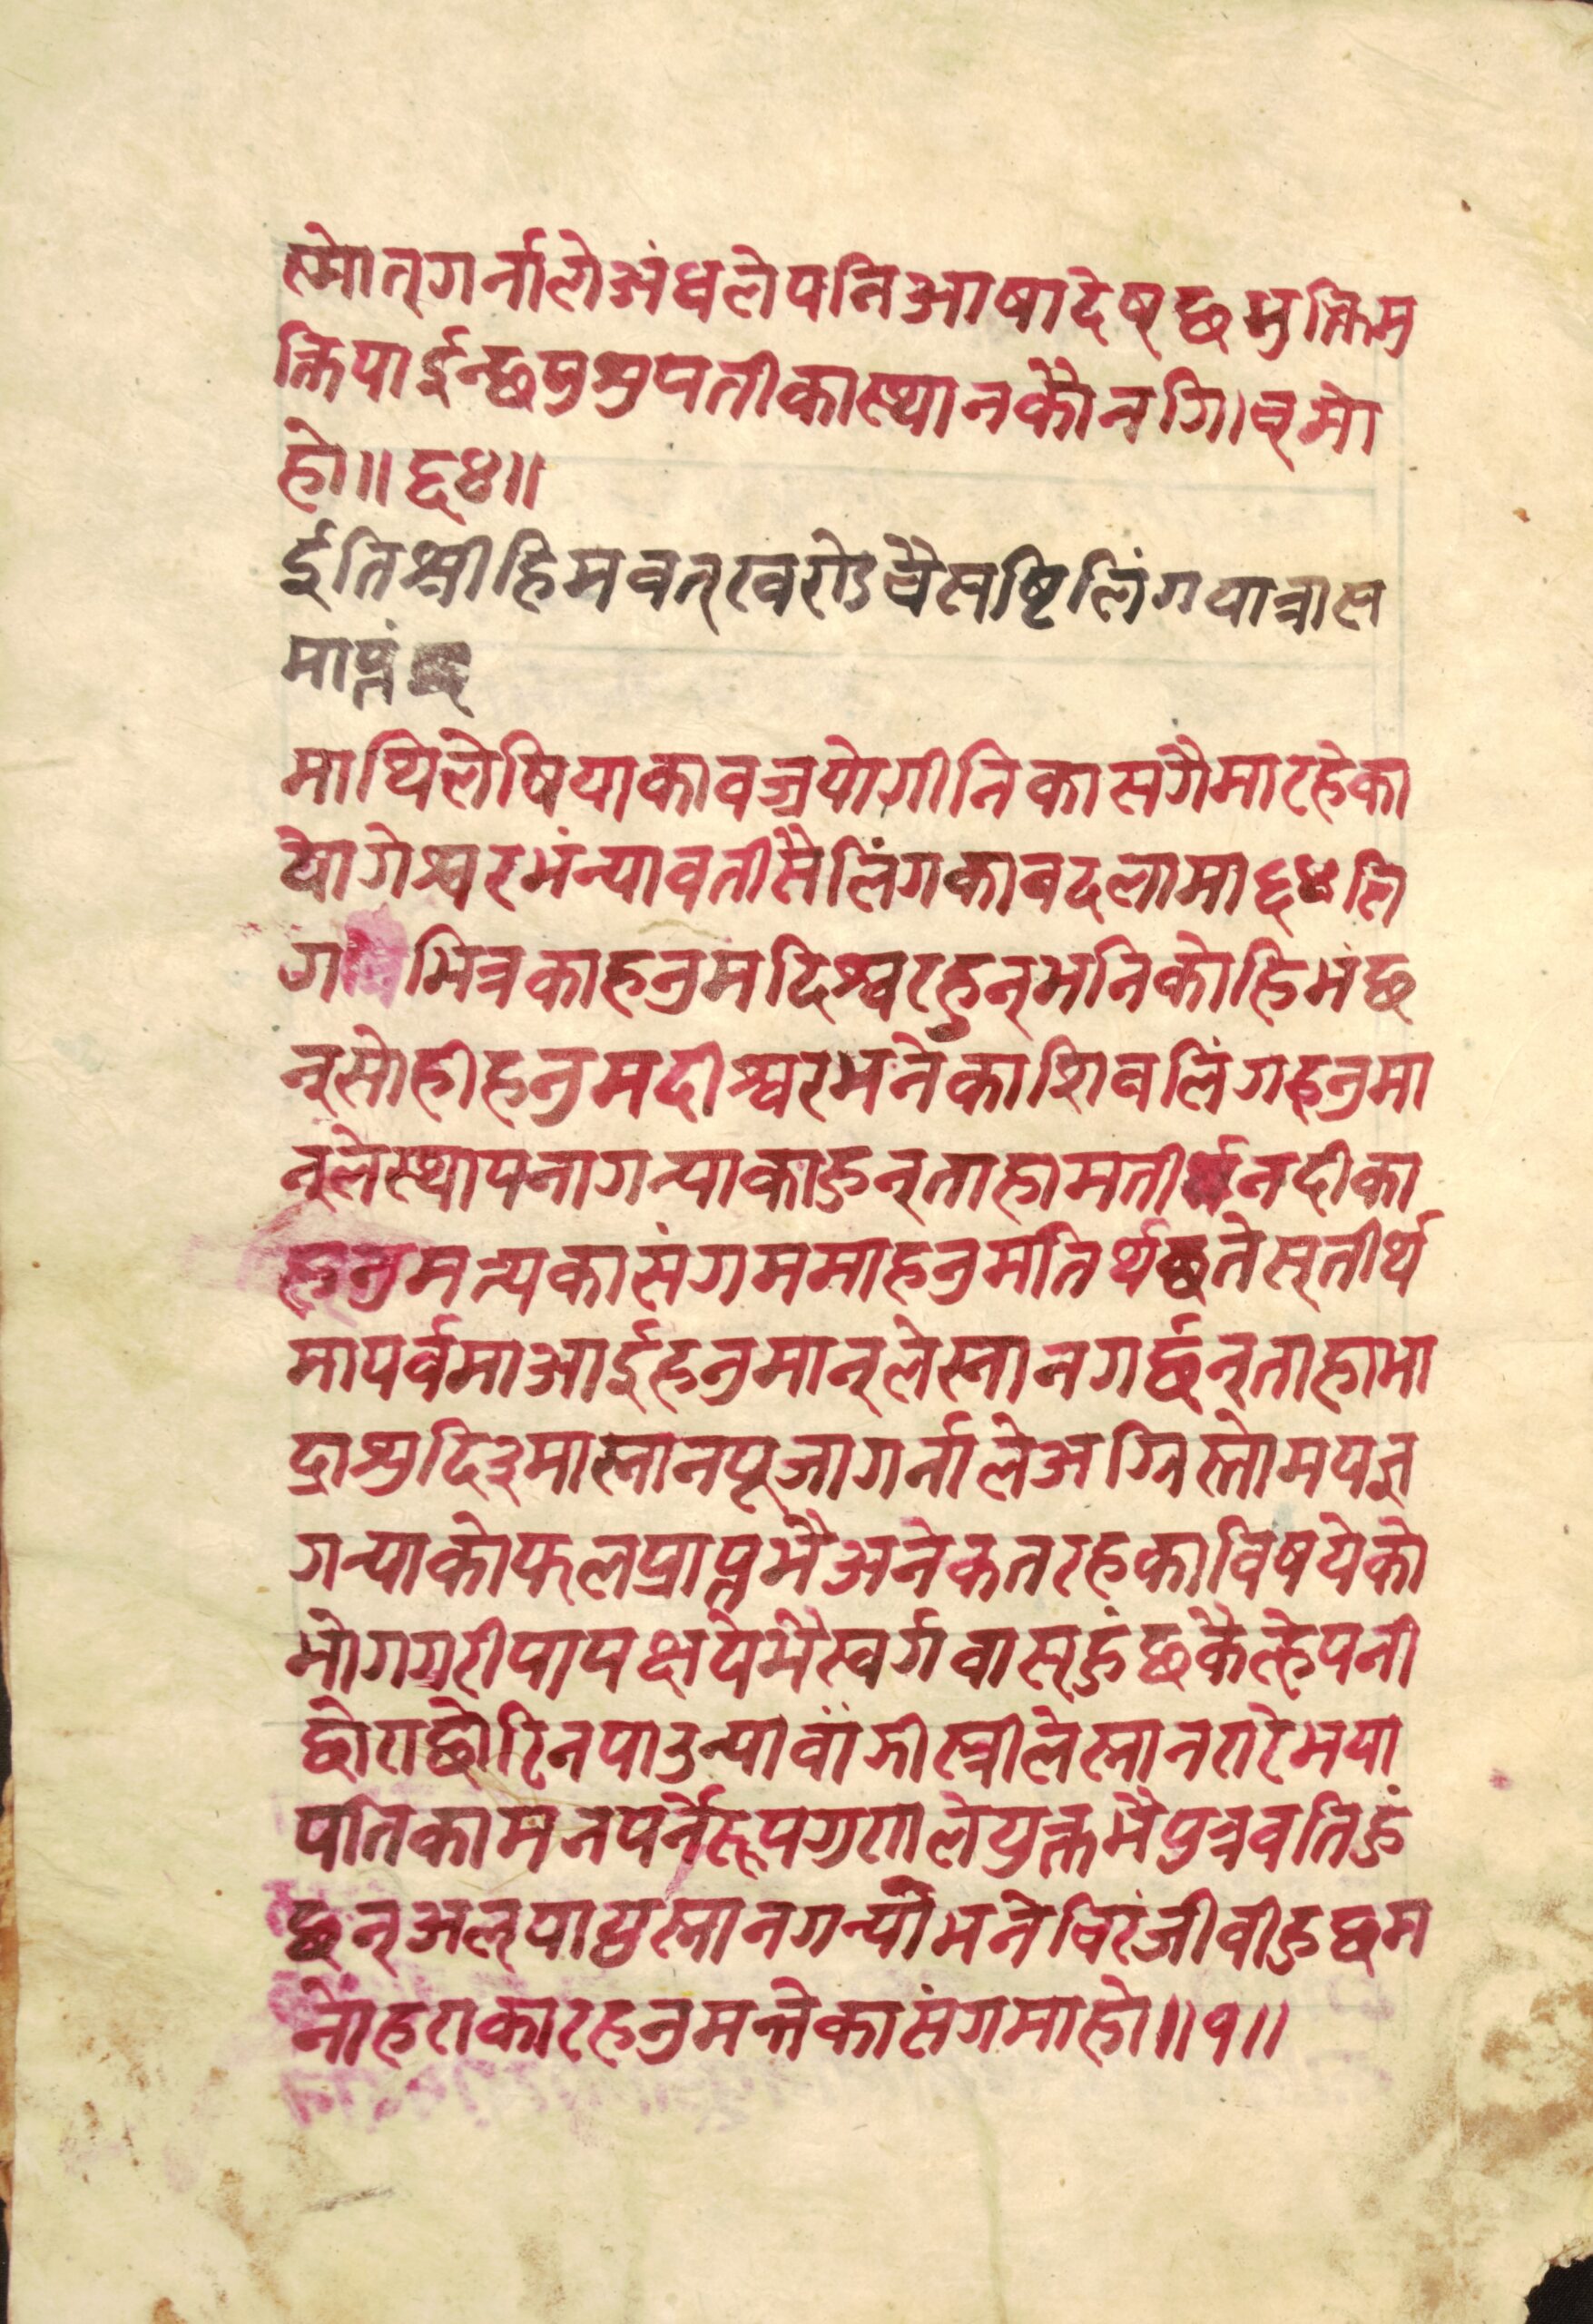 स्मोत् गर्नाले अंधले पनि आषा देष्छ भुक्तिमु
क्ति पाईन्छ पुशुपतीका स्थानकौ नगिीव्मो
हो॥६४॥
ईति श्री हिमवत् खण्डे चैसष्टि लिंग यात्रा स
माप्तं
माथि लेषियाका वज्रयोगीनिका सगैमा रहेका
योगेश्वर भंन्या वतीसै लिंगका बदलामा ६४ लि
ग भित्रका हनुमदिश्वर हुन् भनि कोहि भंछ
न् सोही हनुमदीश्वर भनेका शिवलिंग हनुमा
न्ले स्थापना गन्याका हुन् ताहा मतीर्थ नदीका
हनुमत्यका संगममा हनुमतिर्थ छ तेस् तीर्थ
मा पर्वमा आई हनुमान्ले स्नान गर्छन् ताहा भा
द्राशुदि ३ मा स्नान पूजा गर्नाले अग्निस्तोम यज्ञ
गन्याको फल प्राप्त भै अनेक तरहका विषयेको
भोग गरी पाप क्षये भै स्वर्गवास् हुंछ कैल्हे पनी
छोरा छोरि नपाउन्या वांझी स्त्रीले स्नान गरे भया
पतिका मन पर्ने रूप गुणले युक्त भै पुत्रवति हुं
छन् अल्पायु स्नान गन्यो भने चिरंजीवी हुछ म
नोहराका र हनुमन्तेका संगमा हो॥१॥